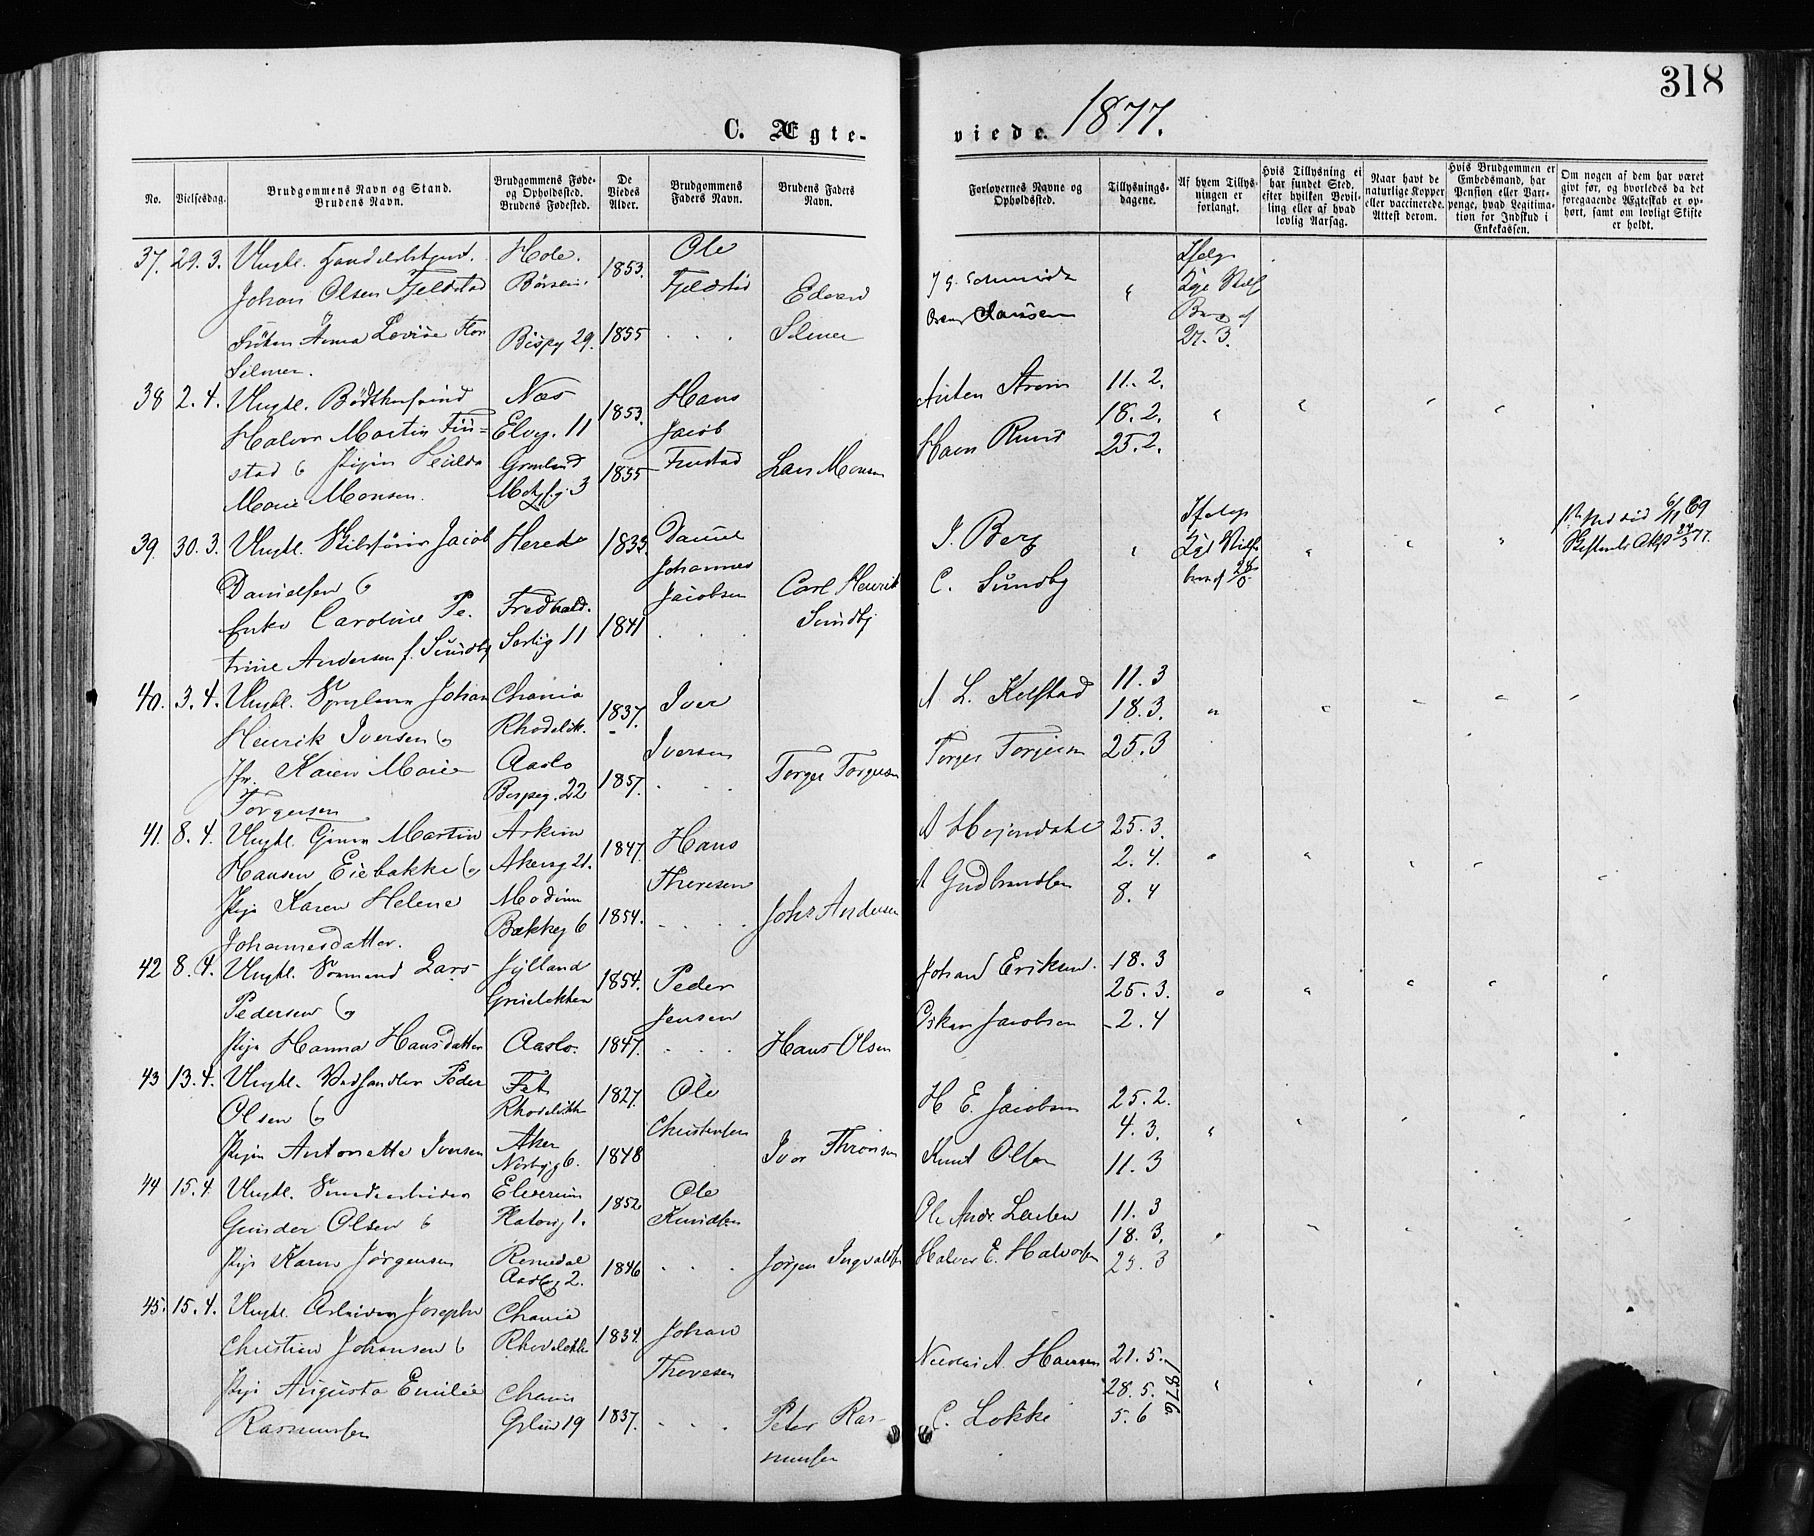 318
C. Ægte-
viede. 1877.
No.
Vielsesdag.
Brudgommens Navn og Stand.
Brudens Navn.
Brudgommens Føde-
og Opholdssted.
Brudens Fødested.
De
Viedes
Alder.
Brudgommens
Faders Navn.
Brudens Faders
Navn.
Forlovernes Navne og
Opholdssted.
Tillysnings-
dagene.
Af hvem Tillys-
ningen er
forlangt.
Hvis Tillysning ei
har fundet Sted,
efter hvilken Bevil-
ling eller af hvad
lovlig Aarsag.
Naar havt de
naturlige Kopper
eller vaccinerede.
Attest derom.
Hvis Brudgommen er
Embedsmand, har
Pension eller Var-
penge, hvad Legitima-
tion for Indskud i
Enkekassen.
Om nogen af dem har været
givt før, og hvorledes da det
foregaaende Ægteskab er op-
hørt, samt om lovligt Skifte
er holdt.
37. 29. 3. Ungkl.
Johan Olsen Fjeldstad
Frøken Anna Lovise
Silmer.
Hole.
Bispg 29.
1853.
1855
Ole
Fjeldstad
Edvard
Silmer
J G. Schmidt
Clausen
27. 3.
38 2. 4. Ungkl. Bødkersvend
Halvor Martin Fru-
stad & Pigen Hulda
Marie Monsen.
Næs
Elvg. 11
Grønland
3
1853.
1855
Hans
Jacob
Frustad
Lars Monsen
Anton Strøm
Hans Ruud
11. 2.
18. 2.
25. 2.
39 30. 3. Ungkl. Skibsfører Jacob
Danielsen &
Enke Caroline Pe-
trine Andersen f. Sundby
Heredø
Fredhald.
Sorlig 11
1835.
1841
Daniel
Johannes
Jacobsen
Carl Henrik
Sundby
J. Berg
C. Sundby
6/11 69
77.
40. 3. 4. Ungkl. Johan
Henrik Iversen &
Jfr. Karen Marie
Torgersen
Chania
Rhodeløk.
Aaslo
Bispeg. 22
1837.
1857.
Iver
Iversen
Torger Torgersen
A. L. Kolstad
Torger Torgersen
11. 3
18. 3.
25. 3
41. 8. 4. Ungkl. Martin
Hansen Eiebakke &
Pige Karen Helene
Johannesdatter.
Askim
Akersg 21.
Modum
Bakkeg 6
1847.
1854.
Hans
Thoresen
Johs Andersen
A Gudbrandsen
25. 3.
2. 4.
8. 4
42 8. 4. Ungkl. Sømand Lars
Pedersen &
Pige Hanna Hansdatter
Jylland
Grüneløkken
Aaslo.
1854.
1847.
Peder
Jensen
Hans Olsen
Johan Eriksen.
Oskar Jacobsen
18. 3
25. 3.
2. 4
43 13. 4. Ungkl. Vedhandler Peder
Olsen &
Pigen Antonette Iversen
Fet
Rhodeløkken
Aker
Norbyg 6.
1827.
1848
Ole
Christensen
Iver Thronsen
H E. Jacobsen
Knut Olsen
25. 2.
4. 3.
11. 3
44 15. 4. Ungkl.
Gunder Olsen &
Pige Karen Jørgensen
Elverum
Platoug 1.
Romedal
Aaslog 2.
1852
1846
Ole
Knudsen
Jørgen Ingvaldsen
Ole Andr. Larsen
Halvor E. Halvorsen
11. 3
18. 3.
25. 3
45. 15. 4. Ungkl. Arbeider Joseph
Christian Johansen &
Pige Augusta Emilie
Rasmussen
Chania
Rhodeløkken
Chania
Grløn 19
1834.
1837.
Johan
Thoresen
Peter Ras-
mussen
Nicolai A. Hansen
C. Løkke
21. 5.
28. 5.
5. 6
1876